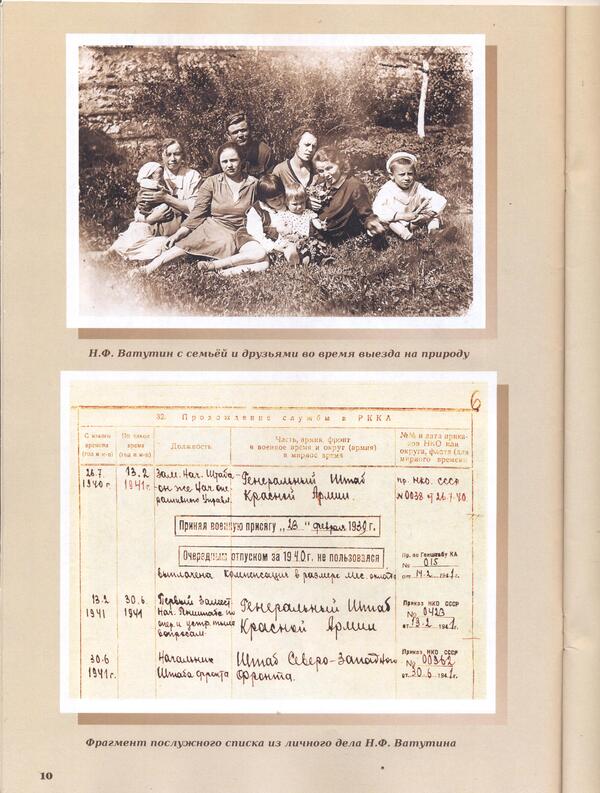 Н.Ф. Ватутин с семьёй и друзьями во время выезда на природу
6
32. Прохождение службы в РККА
С какого времени (год и м-ц)
По какое время (год и м-ц)
Должность
Часть, армия, фронт в военное время и округ (армия) в мирное время
№№ и дата приказов НКО или округа, флота (для мирного времени)
26.7 1940 г.
13.2 1941 г.
Зам. Нач. Штаба он же Нач. оперативного Управл.
Генеральный Штаб Красной Армии.
пр. НКО. СССР №0038 от 26.7.40
Принял военную присягу "23" февраля 1939 г.
Очередным отпуском за 1940 г. не пользовался
выплачена компенсация в размере мес. оклада
Пр. по Генштабу КА № 015 от 14.2 1941 г.
13.2 1941
30.6 1941
Первый Замест. Нач. Генштаба по опер. и устр. тыла вопросам.
Генеральный Штаб Красной Армии
Приказ НКО СССР № 0423 от 13.2 1941 г.
30.6 1941 г.
Начальник Штаба фронта
Штаб Северо-Западного Фронта.
Приказ НКО СССР № 00362 от 30.6 1941 г.
Фрагмент послужного списка из личного дела Н.Ф. Ватутина
10